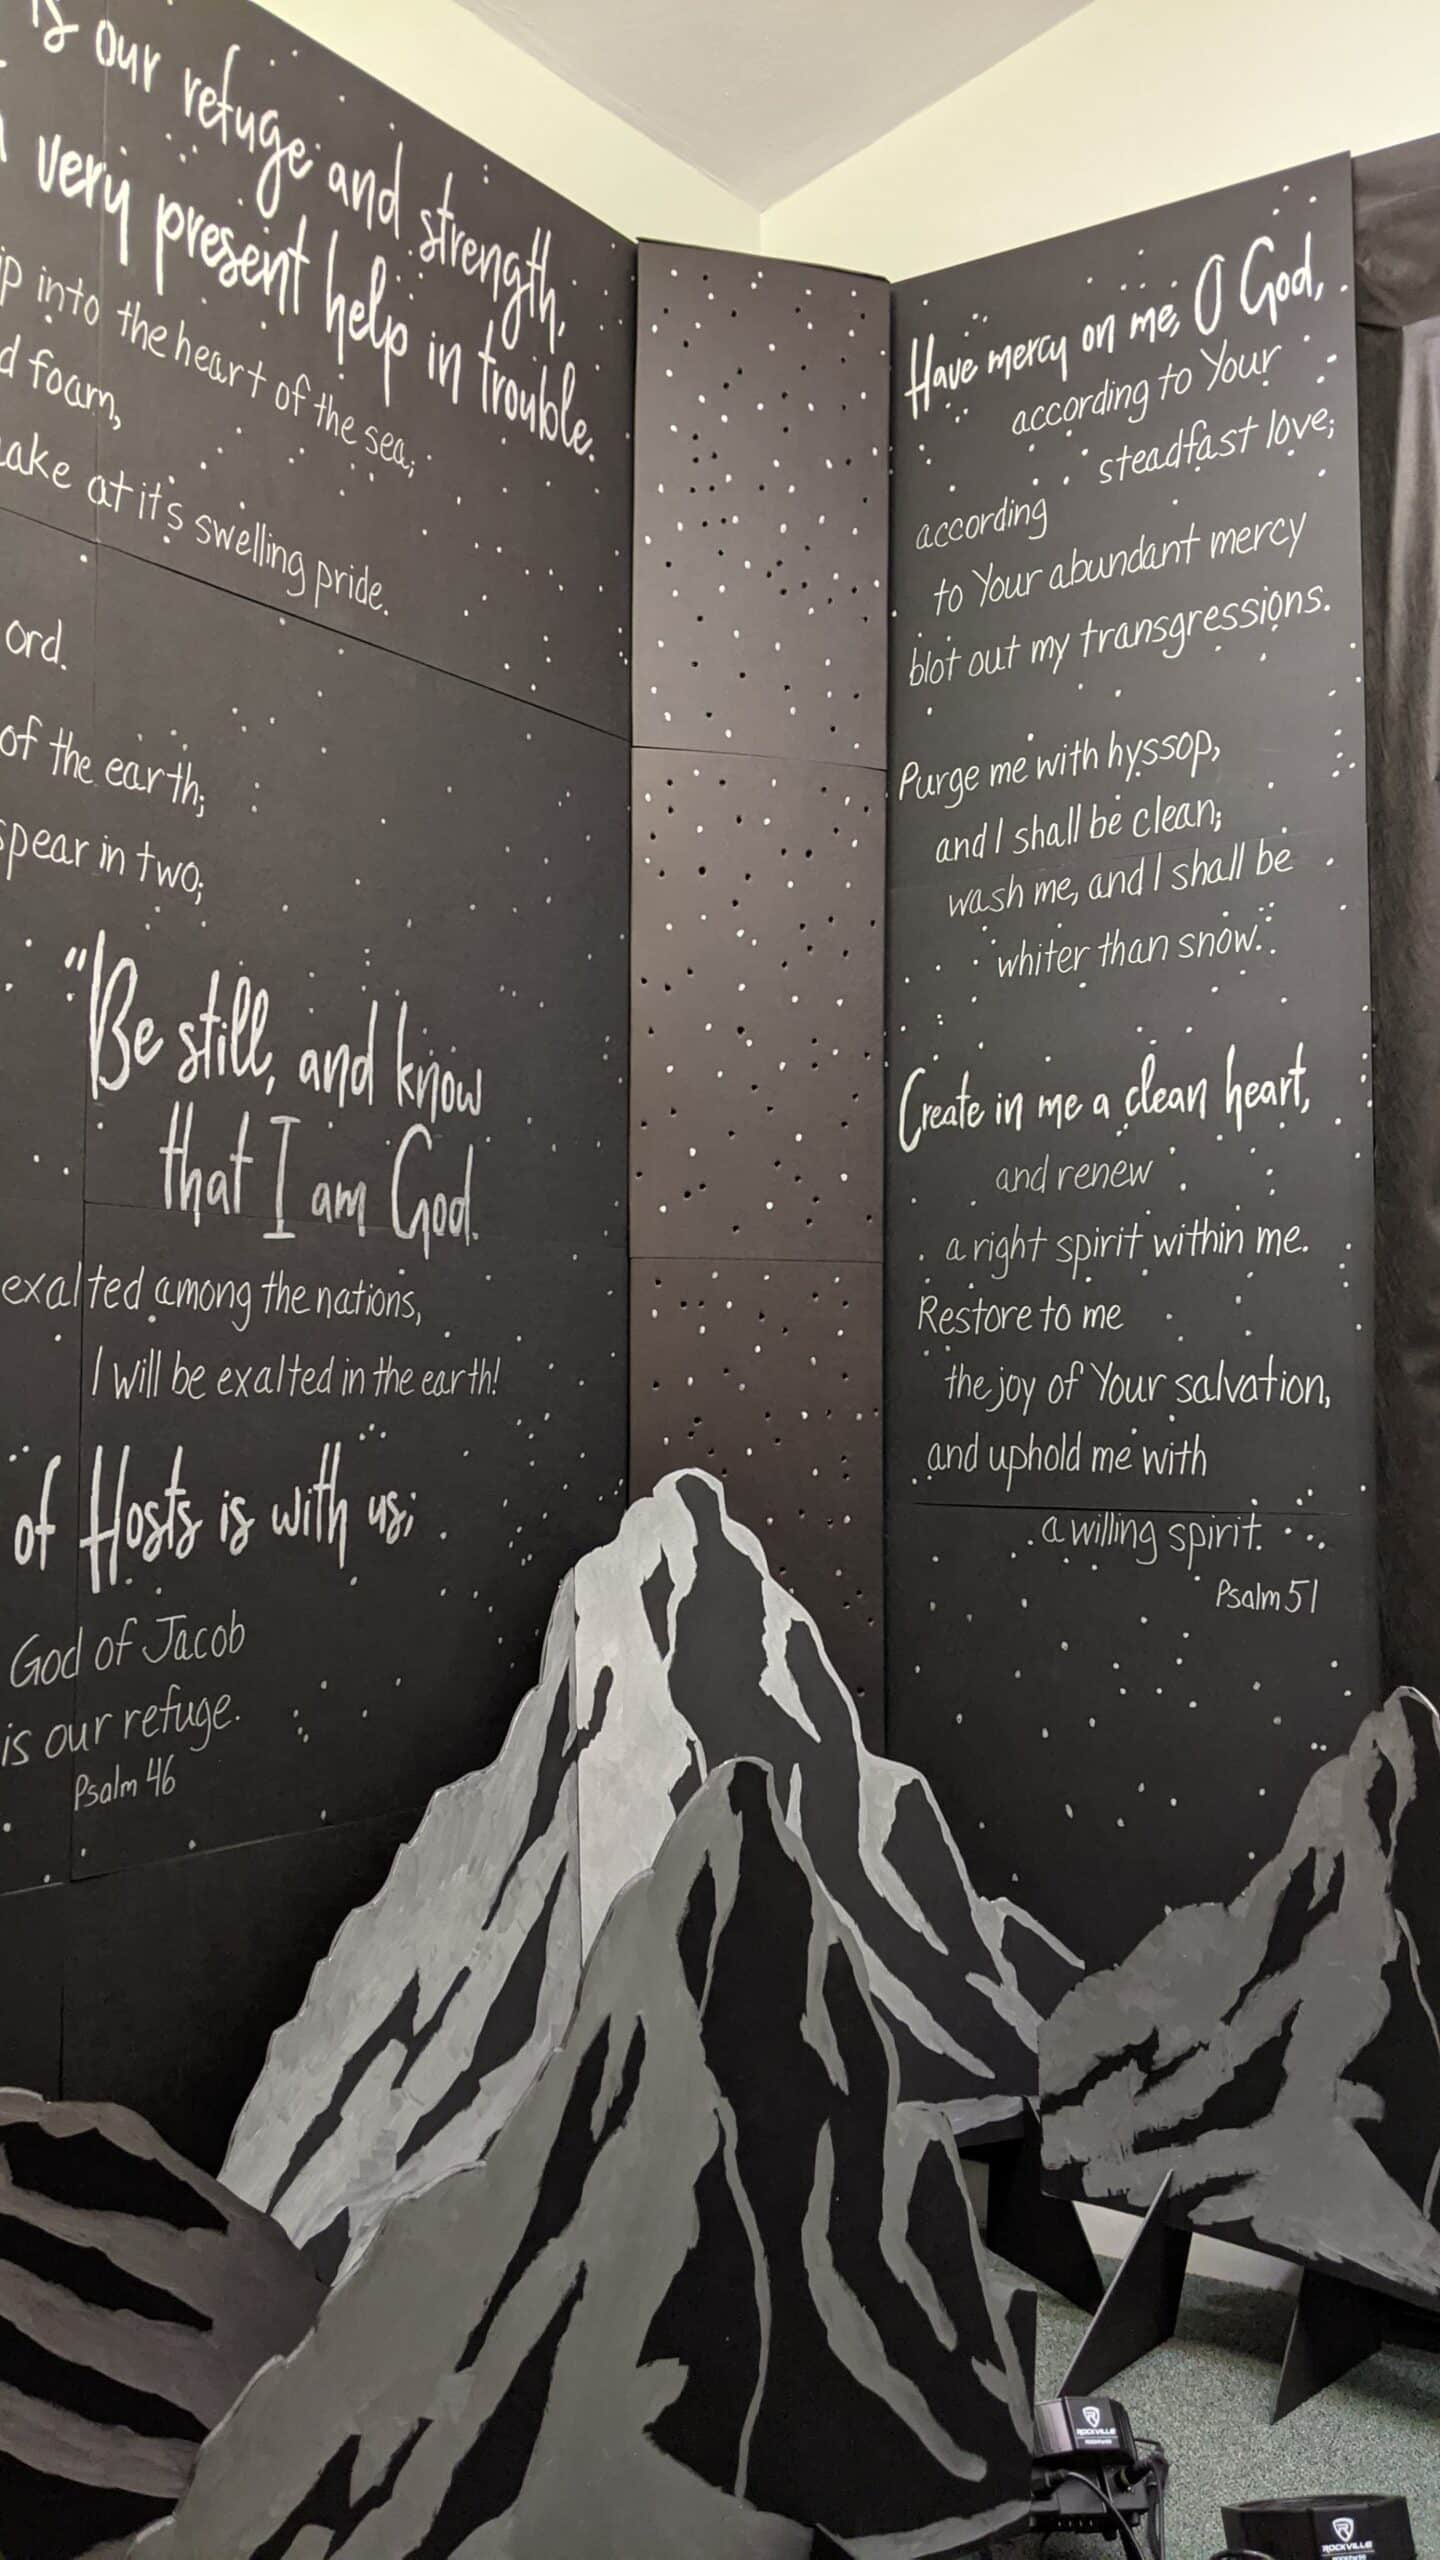 is our refuge and strength,
very present help in trouble.
into the heart of the sea;
foam,
at it's swelling pride.
of the earth;
spear in two;
"Be still, and know
that I am God.
exalted among the nations,
I will be exalted in the earth!
of Hosts is with us;
God of Jacob
is our refuge.
Psalm 46
Have mercy on me, O God,
according to Your
steadfast love;
according
to Your abundant mercy
blot out my transgressions.
Purge me with hyssop,
and I shall be clean;
wash me, and I shall be
whiter than snow.
Create in me a clean heart,
and renew
a right spirit within me.
Restore to me
the joy of Your salvation,
and uphold me with
a willing spirit.
Psalm 51
ROCKVILLE
ROCKVILLE